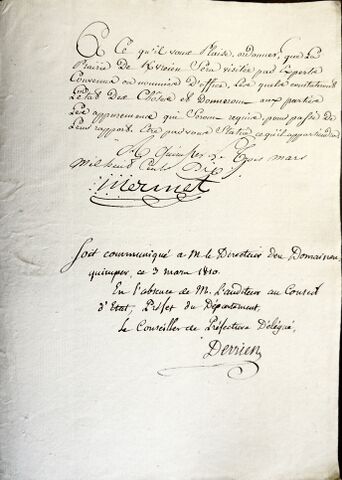 A Ce qu'il vous Plaise, ordonner, que La
Prairie De Sera visitée par Experts
Convenus ou nommés D'office, Les quels constateront
L'état Des Choses et Donneront aux parties
Les apurements qui Seront requis, pour passé de
Leurs rapport Etre par vous Statué ce qu'il appartiendra
A Quimper Le Trois mars
Mil huit Cent Dix
Mermet
Soit communiqué a M. le Directeur des Domaines,
quimper, ce 3 mars 1810.
En l'absence de M. L'auditeur au Conseil
d'Etat, Préfet du Département,
Le Conseiller de Préfecture Délégué,
Derrien